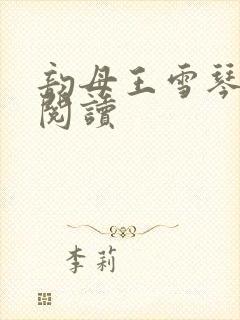 韵母王雪琴
閱讀
李莉